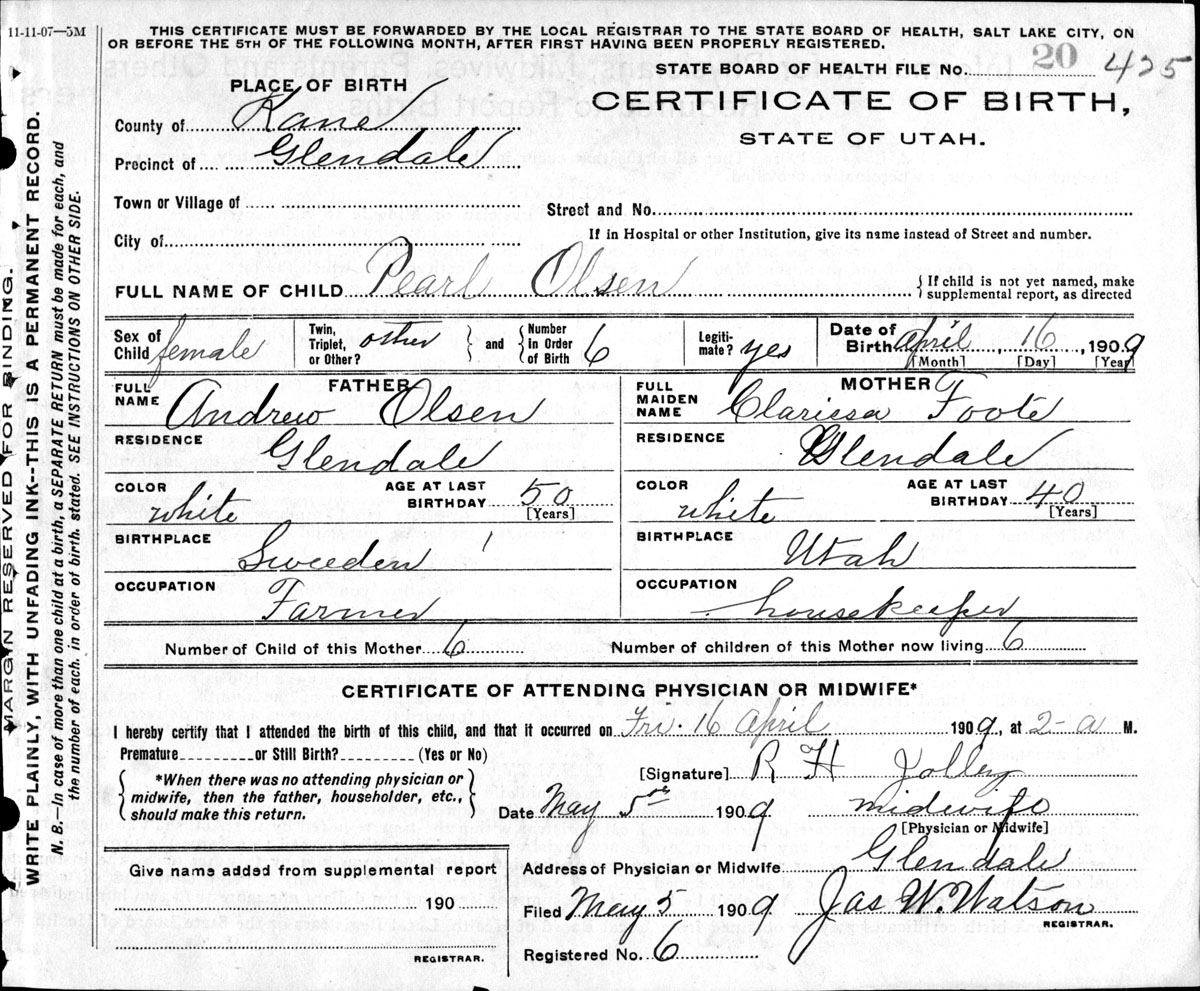 11-11-07—5M
THIS CERTIFICATE MUST BE FORWARDED BY THE LOCAL REGISTRAR TO THE STATE BOARD OF HEALTH, SALT LAKE CITY, ON
OR BEFORE THE 5TH OF THE FOLLOWING MONTH, AFTER FIRST HAVING BEEN PROPERLY REGISTERED.
STATE BOARD OF HEALTH FILE No. 20 425
PLACE OF BIRTH
CERTIFICATE OF BIRTH,
STATE OF UTAH.
County of Kane
Precinct of Glendale
Town or Village of
Street and No.
City of
If in Hospital or other Institution, give its name instead of Street and number.
FULL NAME OF CHILD Pearl Olsen { If child is not yet named, make
supplemental report, as directed
Sex of Child female
Twin, Triplet, or Other? other } and { Number in Order of Birth 6
Legiti-mate? yes
Date of Birth April 16, 1909
[Month] [Day] [Year]
FATHER
FULL NAME Andrew Olsen
RESIDENCE Glendale
COLOR white AGE AT LAST BIRTHDAY 50 [Years]
BIRTHPLACE Sweden
OCCUPATION Farmer
MOTHER
FULL MAIDEN NAME Claricsa Foote
RESIDENCE Glendale
COLOR white AGE AT LAST BIRTHDAY 40 [Years]
BIRTHPLACE Utah
OCCUPATION housekeeper
Number of Child of this Mother 6 Number of children of this Mother now living 6
CERTIFICATE OF ATTENDING PHYSICIAN OR MIDWIFE*
I hereby certify that I attended the birth of this child, and that it occurred on Fri. 16 April 1909, at 2-a M.
Premature or Still Birth? (Yes or No)
{ *When there was no attending physician or
midwife, then the father, householder, etc.,
should make this return. }
[Signature] R H Jolley
Date May 5 1909 midwife
[Physician or Midwife]
Give name added from supplemental report
190
REGISTRAR.
Address of Physician or Midwife Glendale
Filed May 5 1909 Jas W. Watson
REGISTRAR.
Registered No. 6
MARGIN RESERVED FOR BINDING.
WRITE PLAINLY, WITH UNFADING INK--THIS IS A PERMANENT RECORD.
N. B.—In case of more than one child at a birth, a SEPARATE RETURN must be made for each, and
the number of each, in order of birth, stated. SEE INSTRUCTIONS ON OTHER SIDE.